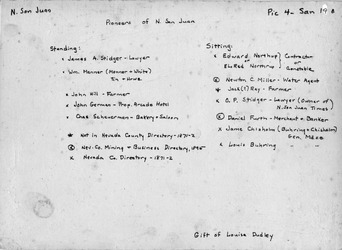 N. San Juan
Pic 4 - San 19
Pioneers of N. San Juan
Standing:
x James A. Stidger - Lawyer
Wm. Menner (Menner & White)
John Hill - Farmer
x John German - Prop. Arcade Hotel
Chas Scheuerman - Bakery & Saloon
Not in Nevada County Directory - 1871-2
Nev. Co. Mining & Business Directory, 1895
x Nevada Co. Directory - 1871-2
Sitting:
x Edward Northup) Contractor
or or
Northup) Constable
Newton C. Miller - Water Agent
Jack(?) Ray - Farmer
x O. P. Stidger - Lawyer (Owner of
N. San Juan Times)
Daniel Furth - Merchant & Banker
x Jame Chisholm (Buhring & Chisholm)
Gen. Mdse
x Louis Buhring
Gift of Louise Dudley